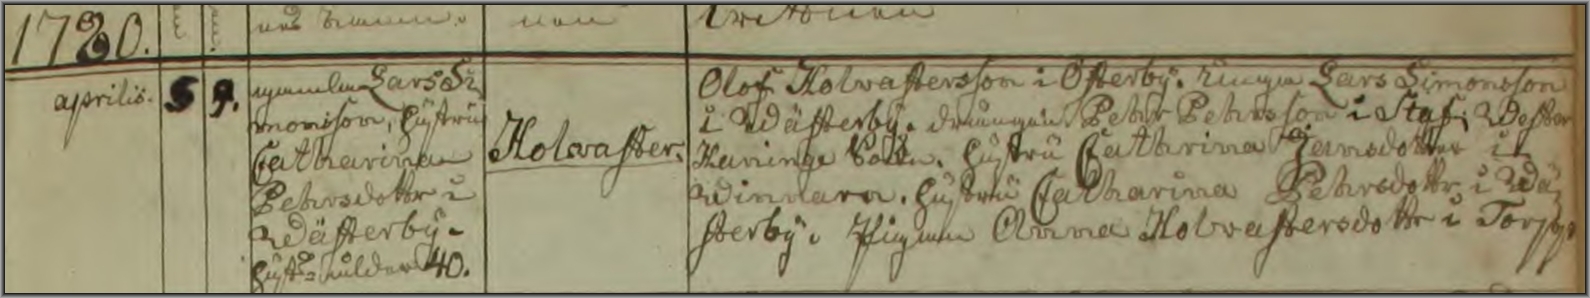 1780.
aprilis. 5 9.
gammlen Lars Si
monison, hustru
Catharina
Petersdotter i
Wästerbÿ.
hust: ålder 40.
Holwaster.
Olof Holwastersson i Österbÿ. unge Lars Simonsson
i Wästerbÿ. drängen Petr Petersson i Staf, Wester
Haninge Sokn. hustru Catharina Jansdotter i
Winnara. hustru Catharina Petersdottr i Wä
sterbÿ. Pigan Anna Holwastersdottr i Torp